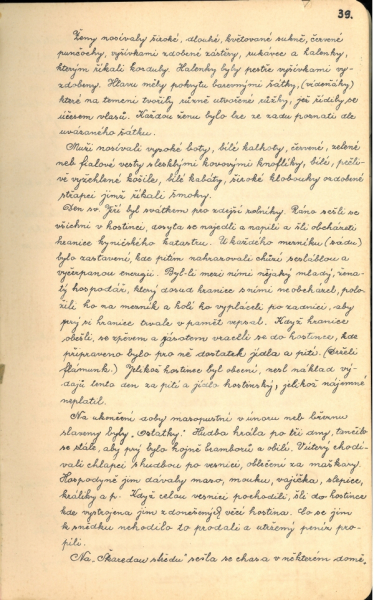 39.
Ženy nosívaly široké, dlouhé, květované sukně, červené
punčochy, vyšívkami zdobené zástěry, rukávce a halenky,
kterým říkali korduly. Halenky byly pestře výšivkami vy-
zdobeny. Hlavu měly pokrytu barevnými šátky,
které na temeni tvořily různě utvořené růžky, jež řídily se
účesem vlasů. Každou ženu bylo lze ze zadu poznati dle
uvázaného šátku.
Muži nosívali vysoké boty, bílé kalhoty, červené, zelené
neb fialové vesty s lesklými kovovými knoflíky, bílé, pečli-
vě vyžehlené košile, bílé kabáty, široké klobouky ozdobené
střapci jimž říkali šmoky.
Den sv. Jiří byl svátkem pro zdejší rolníky. Ráno sešli se
všichni v hostinci, dosyta se najedli a napili a šli obcházeti
hranice kyničského katastru. U každého mezníku (sádu)
bylo zastavení, kde pitím nahrazovali chůzí seslablou a
vyčerpanou energii. Byl-li mezi nimi nějaký mladý, žena-
tý hospodář, který dosud hranice s nimi neobcházel, polo-
žili ho na mezník a holí ho vypláceli po zadnici, aby
prý si hranice trvale v paměť vepsal. Když hranice
obešli, se zpěvem a jásotem vraceli se do hostince, kde
připraveno bylo pro ně dostatek jídla a pití.
Jelikož hostinec byl obecní, nesl náklad vý-
dajů tento den za pití a jídlo hostinský, jelikož nájemné
neplatil.
Na ukončení doby masopustní v únoru neb březnu
slaveny byly „Ostatky.“ Hudba hrála po tři dny, tančilo
se stále, aby prý bylo hojně bramborů a obilí. V úterý chodí-
vali chlapci s hudbou po vesnici, oblečeni za maškary.
Hospodyně jim dávaly maso, mouku, vajíčka, slepice,
králíky a p. Když celou vesnici pochodili, šli do hostince
kde vystrojena jim z donešených věcí hostina. Co se jim
k snědku nehodilo to prodali a utržený peníz pro-
pili.
Na „Škaredou středu“ sešla se chasa v některém domě,